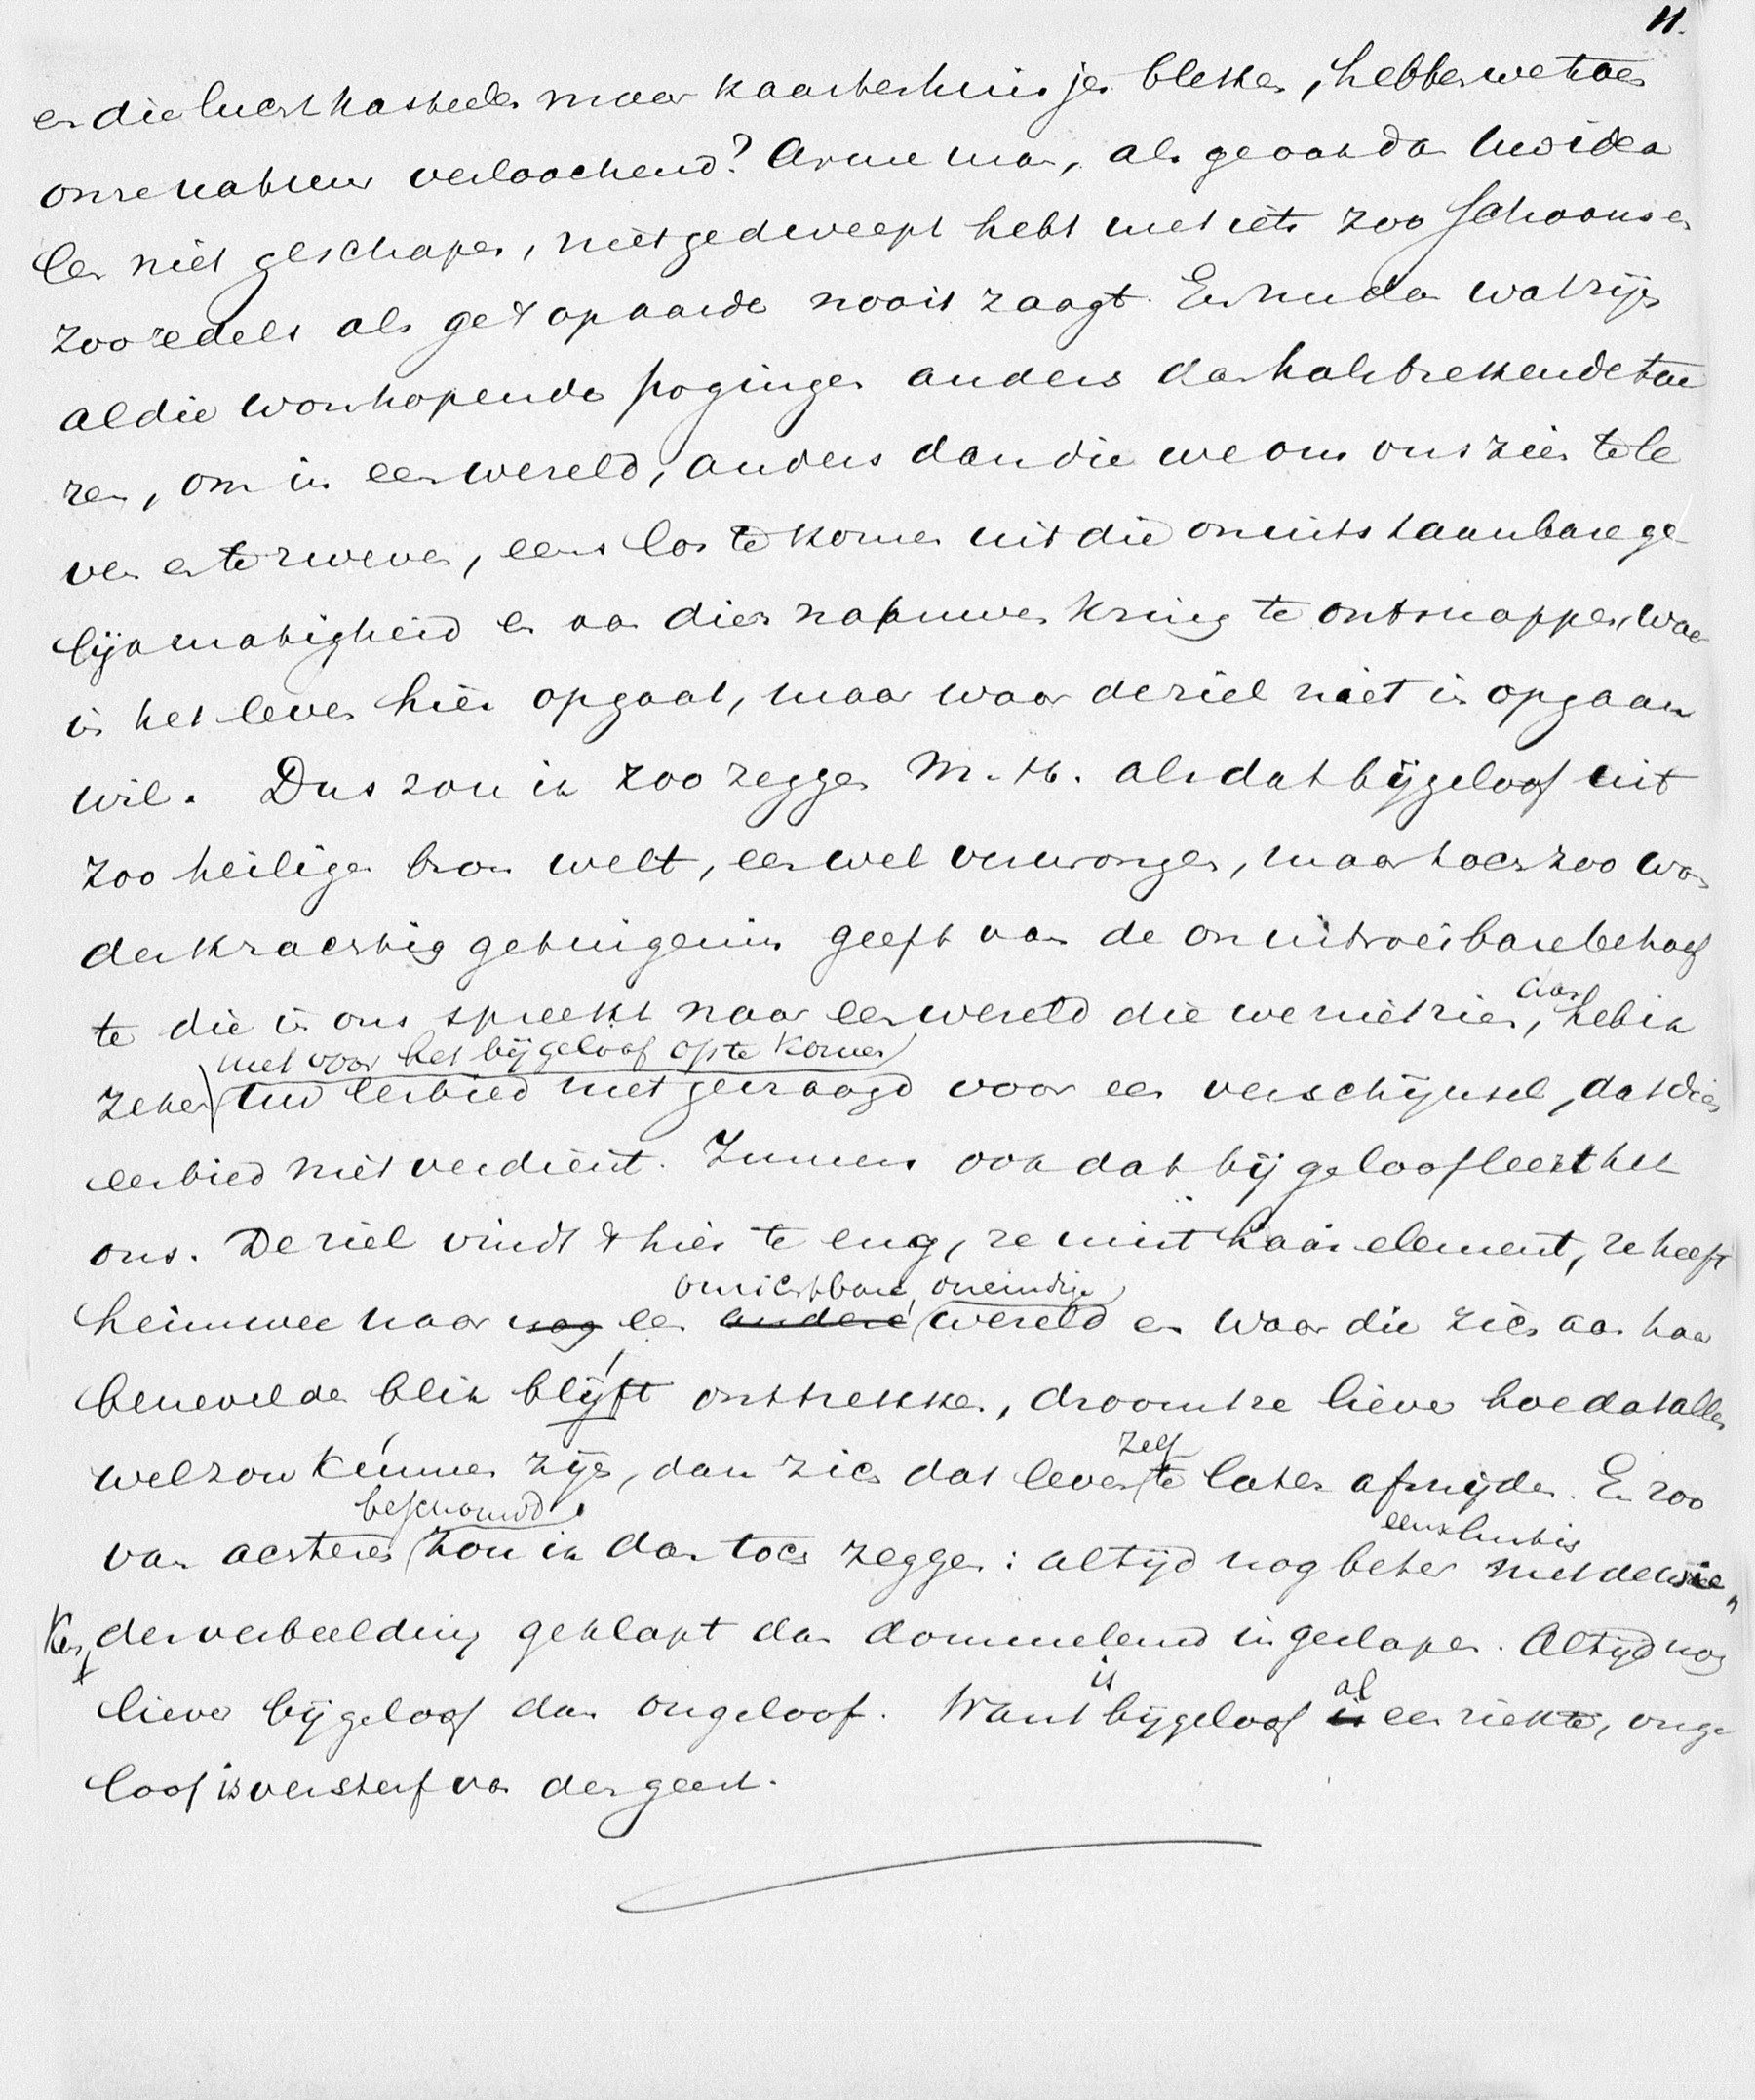 11.
en die luchtkasteelen maar kaartenhuisjes bleken, hebben we toen
onze natuur verloochend? Arme man, als ge ook dan uw idea
len niet geschapen, niet gedweept hebt met iets zoo schoons en
zoo edels als ge 't op aarde nooit zaagt. En nu dan wat zijn
al die wanhopende pogingen anders dan halsbrekende toe
ren, om in een wereld, anders dan die we om ons zien te le
ven en te zweven, eens los te komen uit die onuitstaanbare ge
lijkmatigheid en aan dien nauwen kring te ontsnappen, waar
in het leven hier opgaat, maar waar de ziel niet in opgaan
wil. Dus zou ik zoo zeggen M. H. als dat bijgeloof uit
zoo heilige bron welt, een wel verwrongen, maar toch zoo won
derkrachtig getuigenis geeft van de onuitroeibare behoef
te die in ons spreekt naar een wereld die we niet zien, dan heb ik
zeker met voor het bijgeloof op te komen
uw eerbied niet gevraagd voor een verschijnsel, dat dien
eerbied niet verdient. Immers ook dat bijgeloof leert het
ons. De ziel vindt 't hier te eng, ze mist haar element, ze heeft
onzichtbare, oneindige
heimwee naar nog een andere wereld en waar die zich aan haar
benevelde blik blijft onttrekken, droomt ze liever hoe dat alles
wel zou kunnen zijn, dan zich dat leven zelf te laten afsnijden. En zoo
van achteren beschouwd zou ik dan toch zeggen: altijd nog beter eens lustig met de wie
ken der verbeelding geklapt dan dommelend ingeslapen. Altijd nog
liever bijgeloof dan ongeloof. Want is bijgeloof is al een ziekte, onge
loof is versterf van den geest.